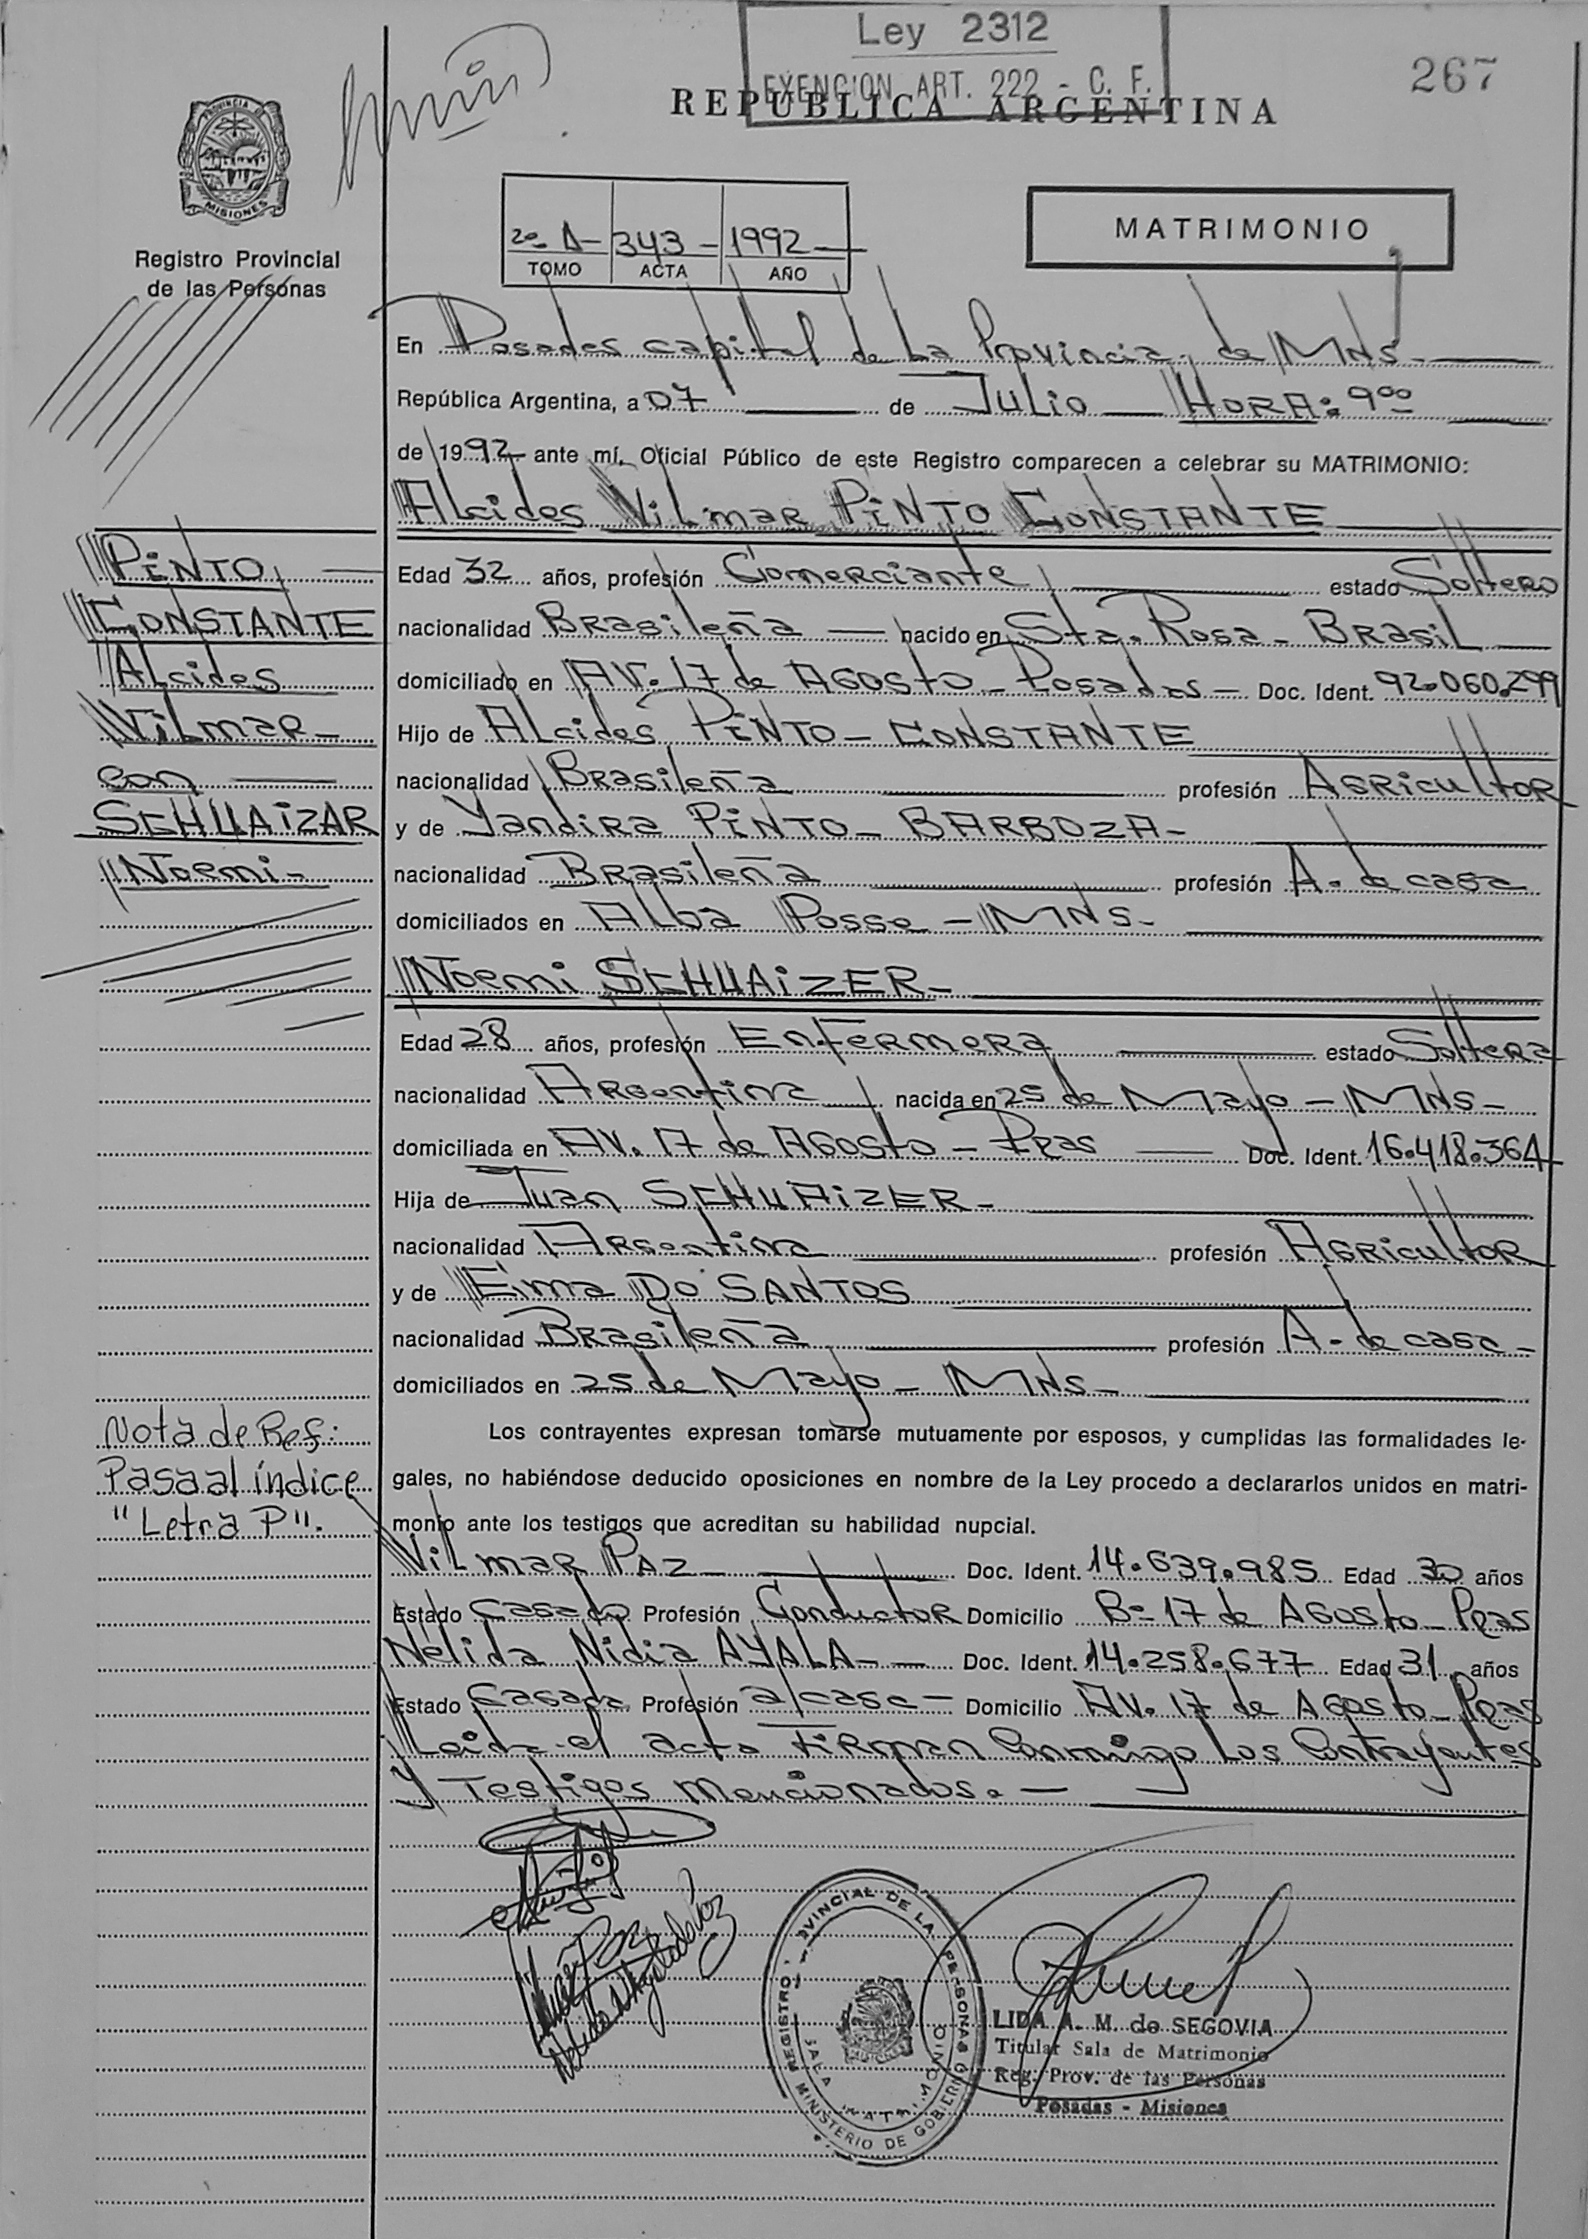 Ley 2312
EXENCION ART. 222 - C. F.
267
REPUBLICA ARGENTINA
PROVINCIA DE
MISIONES
Registro Provincial
de las Personas
2º A - 343 - 1992
TOMO ACTA AÑO
MATRIMONIO
En Posadas capital de La Provincia de MNS
República Argentina, a 07 de Julio HORA: 9 00
de 1992 ante mí, Oficial Público de este Registro comparecen a celebrar su MATRIMONIO:
Alcides Vilmar PINTO CONSTANTE
PINTO
CONSTANTE
Alcides
Vilmar -
con
SCHUAIZAR
Noemi -
Edad 32 años, profesión Comerciante estado Soltero
nacionalidad Brasileña nacido en Sta. Rosa - Brasil
domiciliado en AV. 17 de Agosto - Posadas - Doc. Ident. 92.060.299
Hijo de Alcides PINTO - CONSTANTE
nacionalidad Brasileña profesión Agricultor
y de Yandira PINTO - BARBOZA -
nacionalidad Brasileña profesión A. de casa
domiciliados en Alba Posse - MNS -
Noemi SCHUAIZER -
Edad 28 años, profesión Enfermera estado Soltera
nacionalidad Argentina nacida en 25 de Mayo - MNS -
domiciliada en AV. 17 de Agosto - Pdas Doc. Ident. 16.418.364
Hija de Juan SCHUAIZER -
nacionalidad Argentina profesión Agricultor
y de Eima DO SANTOS
nacionalidad Brasileña profesión A - de casa -
domiciliados en 25 de Mayo - MNS -
Nota de Ref:
Pasa al índice
"Letra P".
Los contrayentes expresan tomarse mutuamente por esposos, y cumplidas las formalidades le-
gales, no habiéndose deducido oposiciones en nombre de la Ley procedo a declararlos unidos en matri-
monio ante los testigos que acreditan su habilidad nupcial.
Vilmar PAZ Doc. Ident. 14.639.985 Edad 30 años
Estado Casado Profesión Conductor Domicilio Bº 17 de Agosto - Pdas
Nelida Nidia AYALA - Doc. Ident. 14.258.677 Edad 31 años
Estado Casada Profesión a/casa - Domicilio AV. 17 de Agosto - Pdas
Leida el acta Firman Conmigo Los Contrayentes
Y Testigos Mencionados. -
REGISTRO PROVINCIAL DE LAS PERSONAS
SALA MATRIMONIO
MINISTERIO DE GOBIERNO
LIDA A. M. de SEGOVIA
Titular Sala de Matrimonio
Reg. Prov. de las Personas
Posadas - Misiones